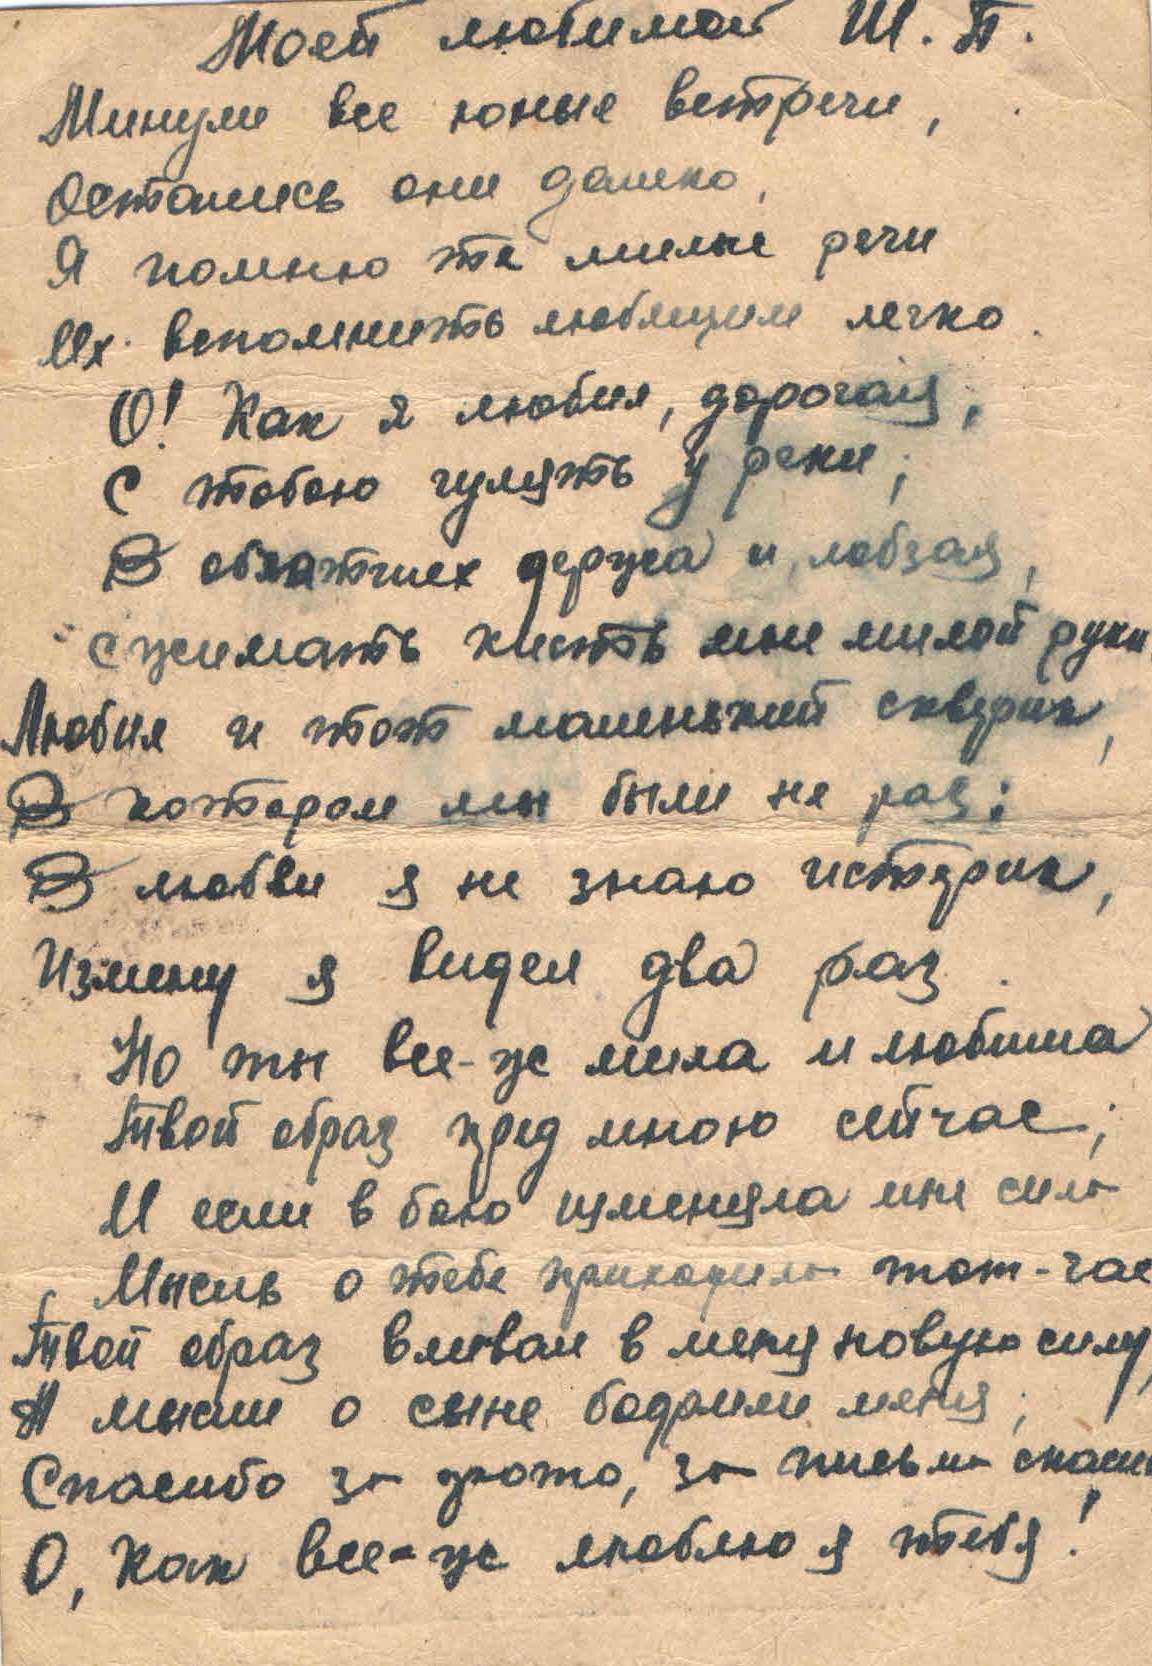 Моей любимой Ш. П.
Минули все юные встречи,
Остались они далеко,
Я помню те милые речи
Их вспомнить любящим легко.
О! Как я любил, дорогая,
С тобою гулять у реки;
В обхатиях держа и, лобзая,
Сжимать кисть мне милой руки
Любил и тот маленький скверик,
В котором мы были не раз;
В любви я не знаю истерик,
Измену я видел два раз.
Но ты все-ж мила и любима
Твой образ пред мною сейчас;
И если в бою изменяла мне сила
Мысль о тебе приходила тот-час
Твой образ вливал в меня новую силу,
А мысли о сыне бодрили меня;
Спасибо за фото, за письма
О, как все-ж люблю я тебя!